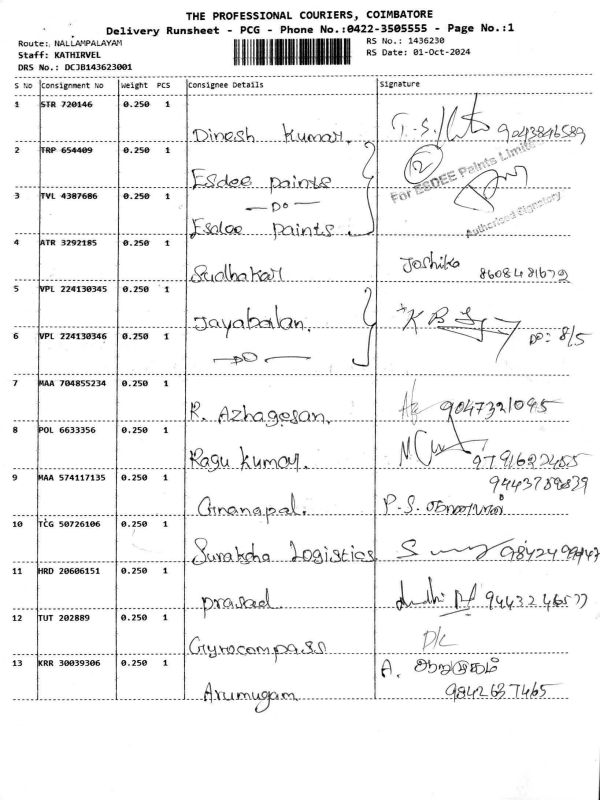 THE PROFESSIONAL COURIERS, COIMBATORE
Delivery Runsheet - PCG - Phone No.:0422-3505555 - Page No.:1
Route: NALLAMPALAYAM RS No.: 1436230
Staff: KATHIRVEL RS Date: 01-Oct-2024
DRS No.: DCJB143623001
S No Consignment No Weight PCS Consignee Details Signature
1 STR 720146 0.250 1
Dinesh Kumar. T.S. 9043846589
2 TRP 654409 0.250 1 12
Esdee paints For ESDEE Paints Limited
3 TVL 4387686 0.250 1 -DO-
Esdee paints. Authorised Signatory
4 ATR 3292185 0.250 1
Sudhakar Joshika 8608481679
5 VPL 224130345 0.250 1
Jayabalan. K B
6 VPL 224130346 0.250 1 DO: 8/5
-DO-
7 MAA 704855234 0.250 1
R. Azhagesan. 9047321095
8 POL 6633356 0.250 1
Ragu Kumar. 9791622455
9 MAA 574117135 0.250 1 9443789839
Gnanapal. P-S.
10 TCG 50726106 0.250 1
Suraksha Logistics
11 HRD 20606151 0.250 1
prasad 9443246577
12 TUT 202889 0.250 1 D/C
Gyrocompass
13 KRR 30039306 0.250 1 A. ஆறுமுகம்
Arumugam 9842637465